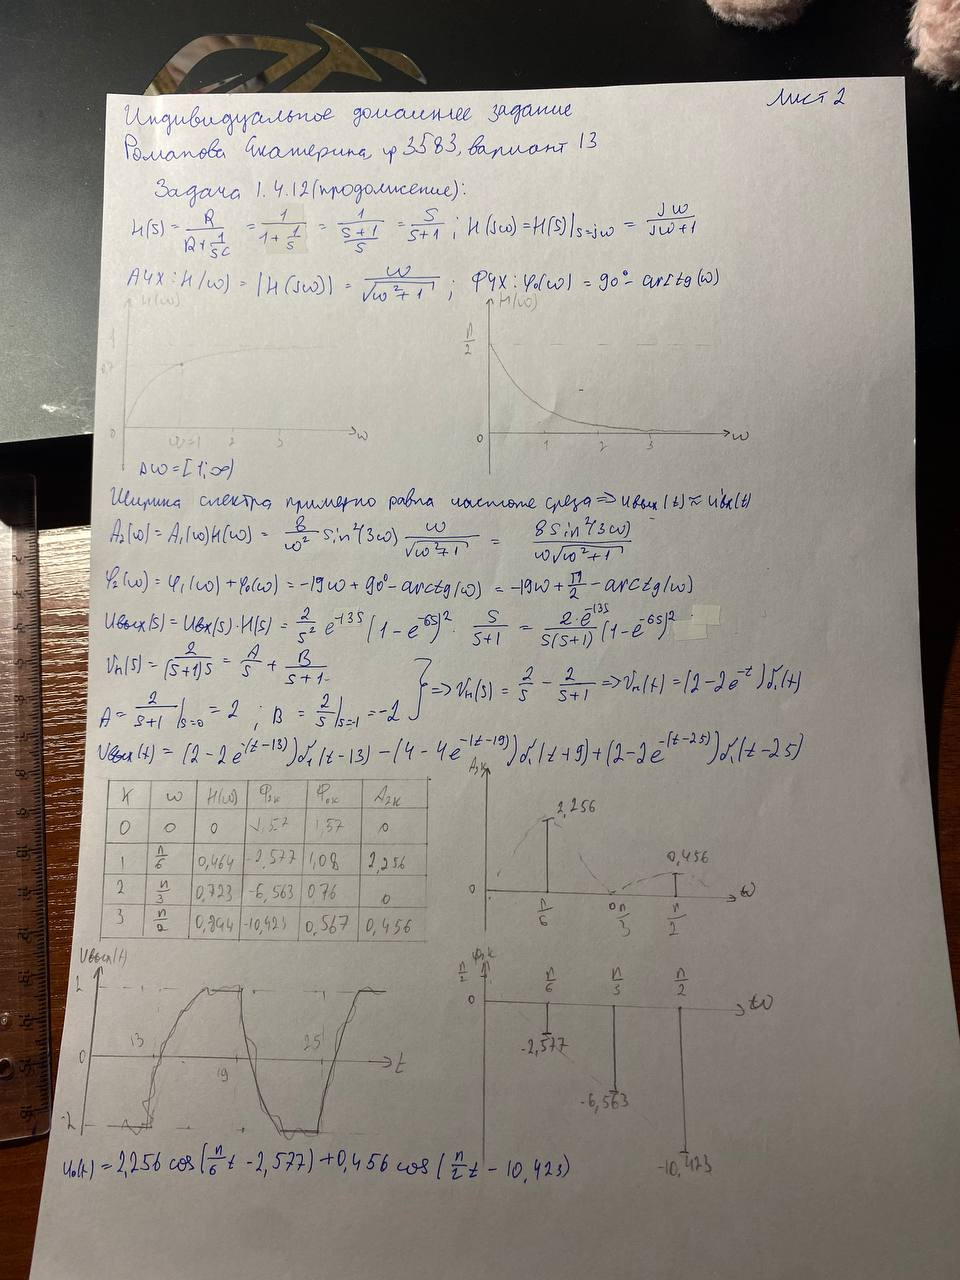 Лист 2
Индивидуальное домашнее задание
Романова Екатерина, гр 3583, вариант 13
Задача 1.4.12 (продолжение):
H(s) = R/(R+1/sC) = 1/(1+1/s) = 1/((s+1)/s) = s/(s+1) ; H(jω) = H(s)|s=jω = jω/(jω+1)
АЧХ: H(ω) = |H(jω)| = ω/√(ω²+1) ; ФЧХ: φ₀(ω) = 90° - arctg(ω)
H(ω) H(ω)
1 π/2
0,7
0 ω=1 2 3 ω 0 1 2 3 ω
Δω = [1; ∞)
Ширина спектра примерно равна частоте среза => uвых(t) ≈ uвх(t)
A₂(ω) = A₁(ω)H(ω) = 8/ω² sin²(3ω) ω/√(ω²+1) = 8 sin²(3ω)/(ω√(ω²+1))
φ₂(ω) = φ₁(ω) + φ₀(ω) = -19ω + 90° - arctg(ω) = -19ω + π/2 - arctg(ω)
Uвых(s) = Uвх(s)·H(s) = 2/s² e^(-13s) (1-e^(-6s))² · s/(s+1) = 2·e^(-13s)/(s(s+1)) (1-e^(-6s))²
Uп(s) = 2/((s+1)s) = A/s + B/(s+1)
A = 2/(s+1)|s=0 = 2 ; B = 2/s|s=-1 = -2 } => Uп(s) = 2/s - 2/(s+1) => Uп(t) = (2-2e^(-t))δ₁(t)
Uвых(t) = (2-2e^(-(t-13)))δ₁(t-13) - (4-4e^(-(t-19)))δ₁(t+9) + (2-2e^(-(t-25)))δ₁(t-25)
K ω H(ω) φ₂ₖ φ₀ₖ A₂ₖ
0 0 0 1,57 1,57 0
1 π/6 0,464 -2,577 1,08 2,256
2 π/3 0,723 -6,563 0,76 0
3 π/2 0,844 -10,423 0,567 0,456
A₂ₖ
2,256
0,456
0 π/6 0 π/3 π/2 ω
Uвых(t)
2
13 25
0 19 t
-2
π/2 π/6 π/3 π/2
0 ω
-2,577
-6,563
-10,423
u₀(t) = 2,256 cos(π/6 t - 2,577) + 0,456 cos(π/2 t - 10,423)